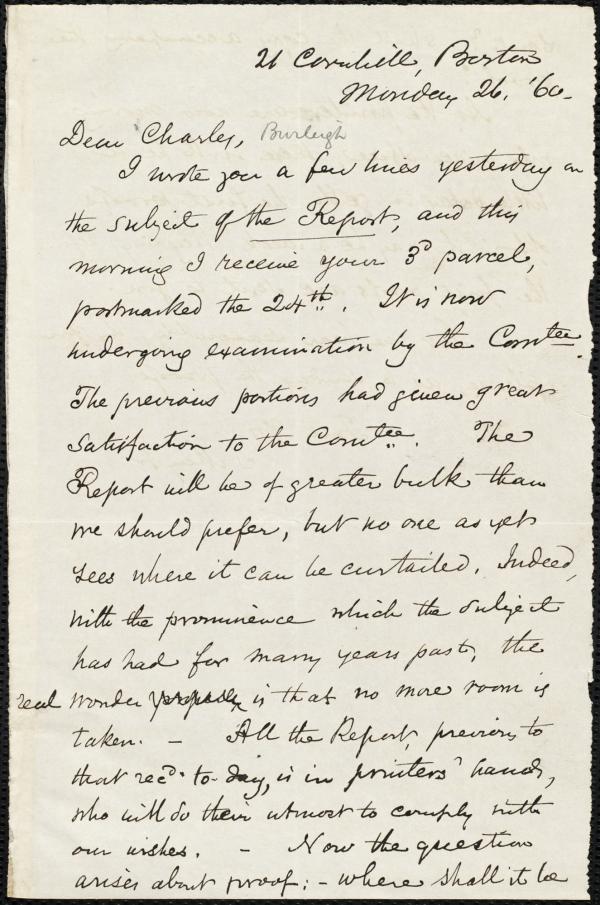 21 Cornhill, Boston
Monday 26. '60.
Dear Charles, Burleigh
I wrote you a few lines yesterday on
the subject of the Report, and this
morning I receive your 3d parcel,
postmarked the 24th. It is now
undergoing examination by the Comtee.
The previous portions had given great
satisfaction to the Comtee. The
Report will be of greater bulk than
we should prefer, but no one as yet
sees where it can be curtailed. Indeed,
with the prominence which the subject
has had for many years past, the
real wonder is that no more room is
taken. — All the Report, previous to
that recd. to-day, is in printers' hands,
who will do their utmost to comply with
our wishes. — Now the question
arises about proof: – where shall it be